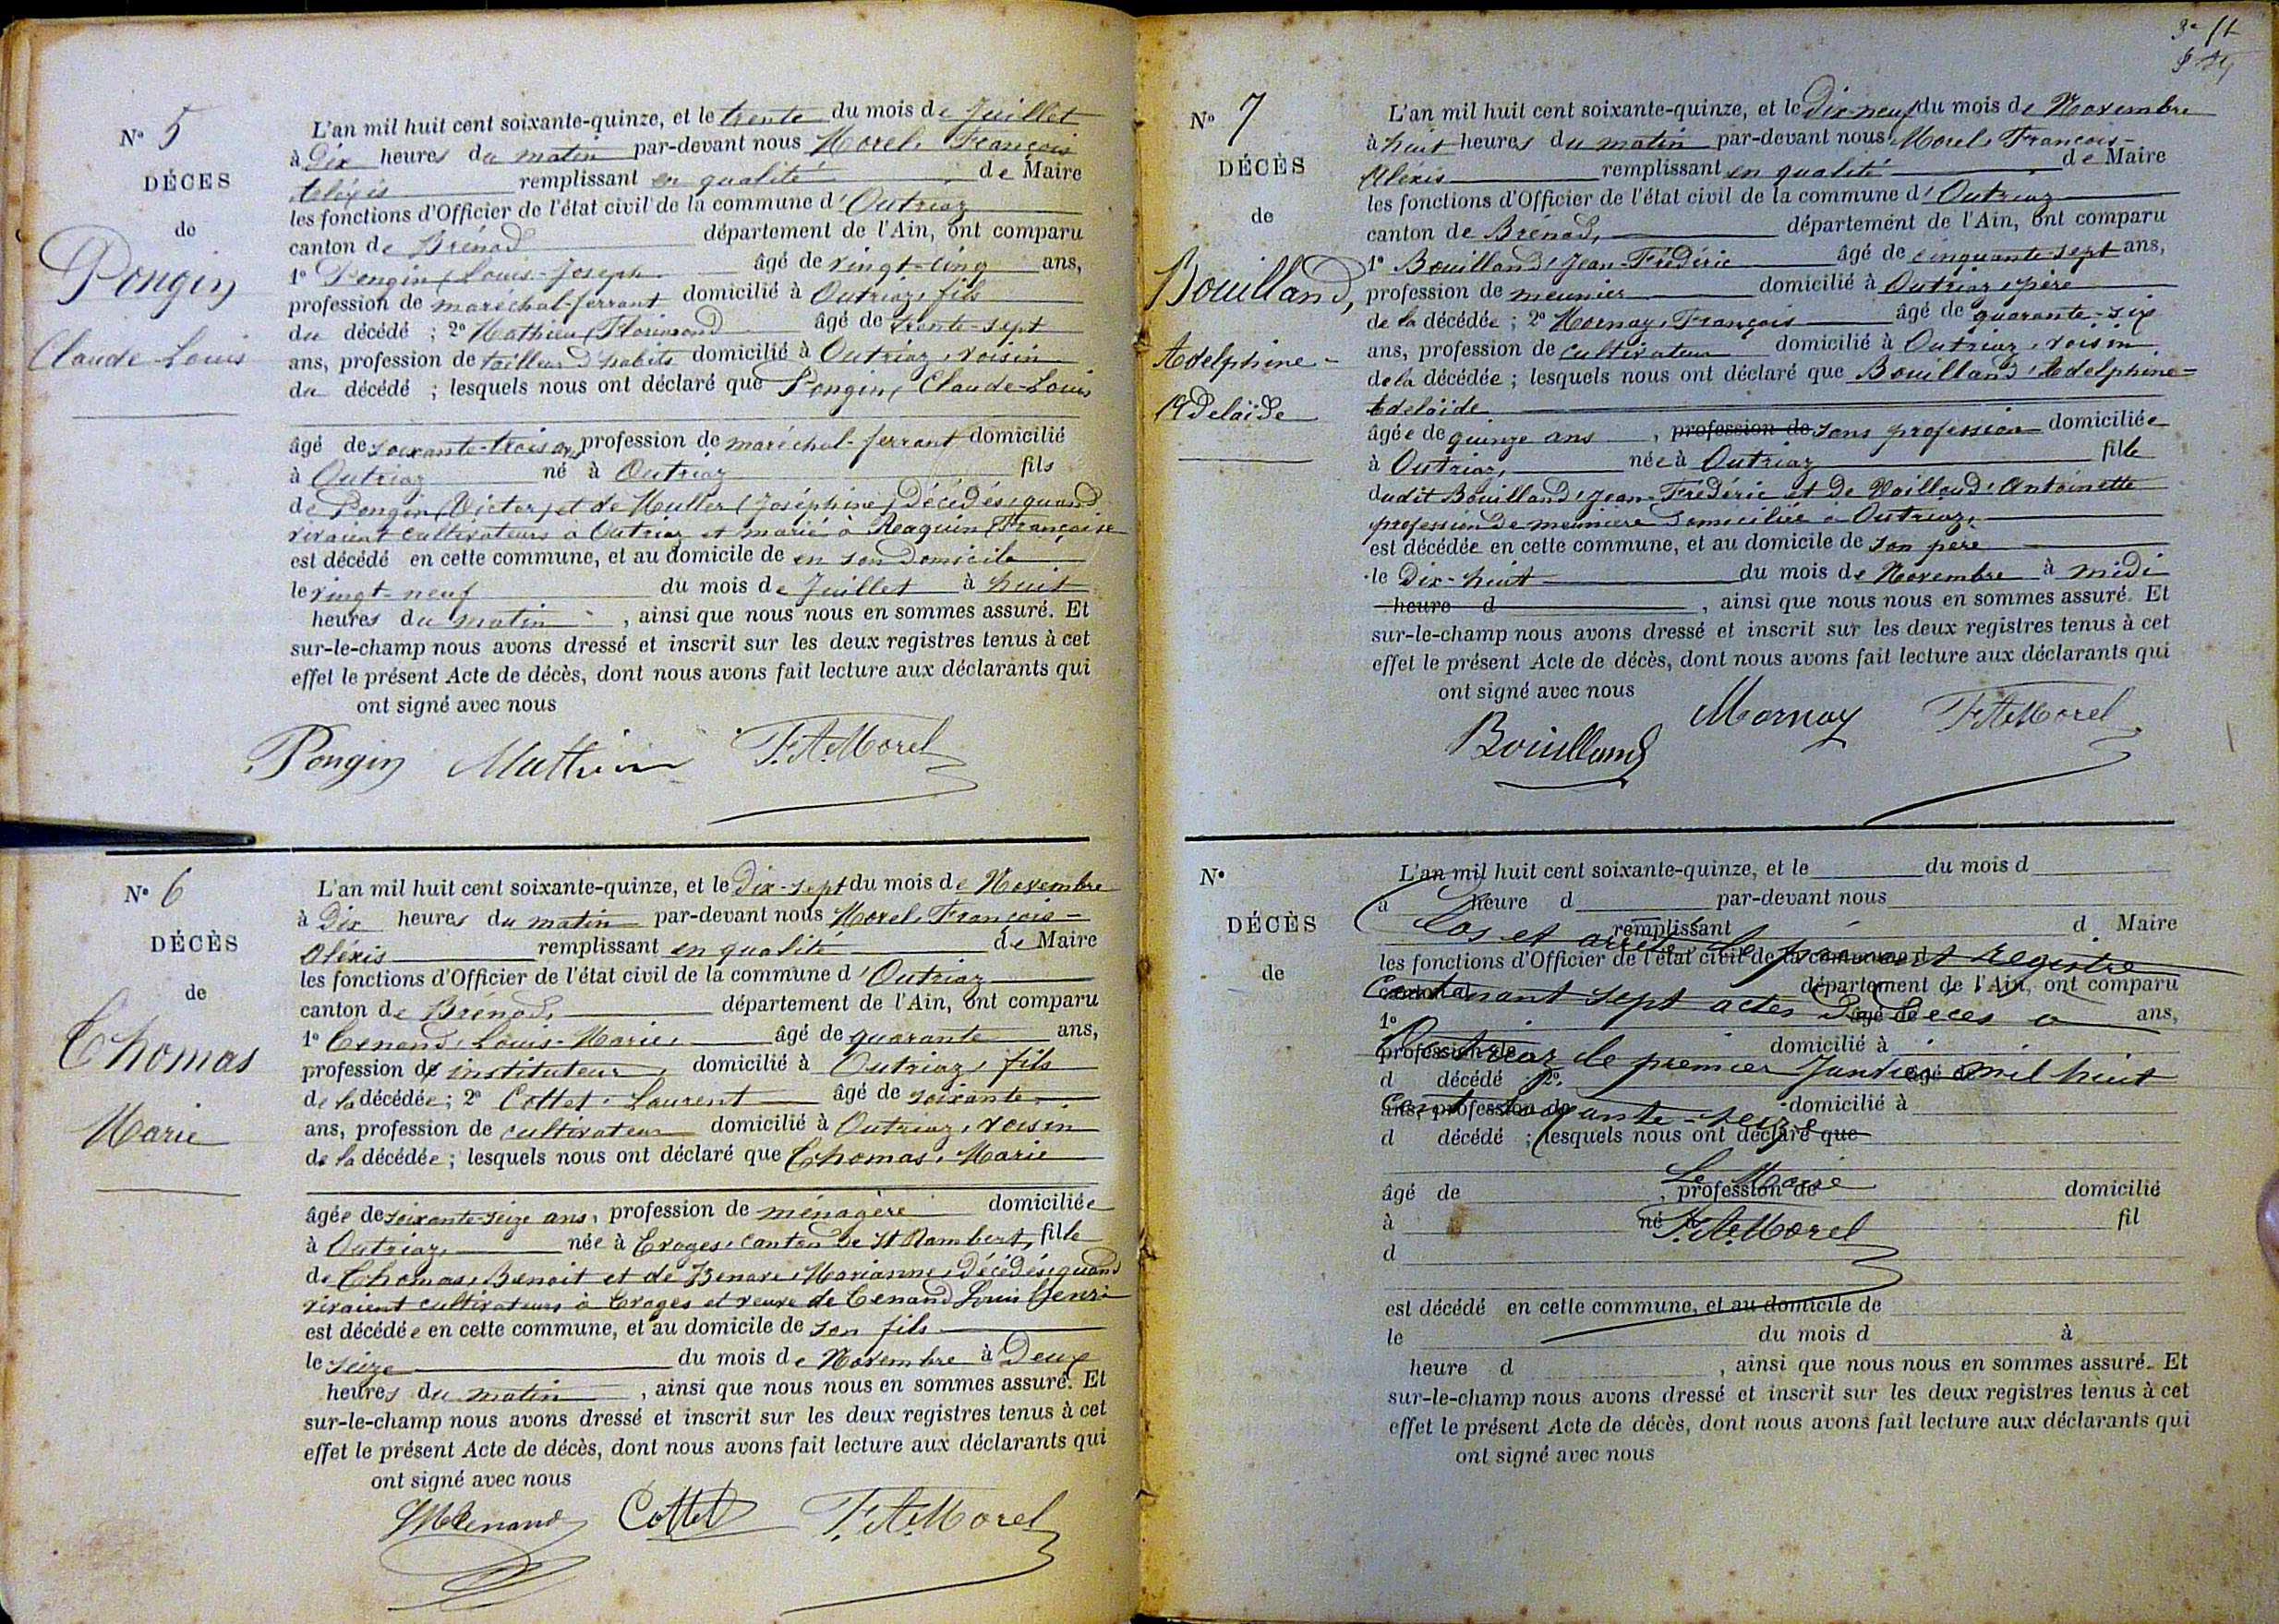 N° 5
DÉCES
de
Pongin
Claude-Louis
L'an mil huit cent soixante-quinze, et le trente du mois de Juillet
à Dix heures du matin par-devant nous Morel, François
Aléxis remplissant en qualité de Maire
les fonctions d'Officier de l'état civil de la commune d'Outriaz
canton de Brénod département de l'Ain, ont comparu
1° Pongin, Louis-Joseph âgé de vingt-cinq ans,
profession de maréchal-ferrant domicilié à Outriaz, fils
du décédé ; 2° Mathieu, Florimond âgé de trente-sept
ans, profession de tailleur d'habits domicilié à Outriaz, voisin
du décédé ; lesquels nous ont déclaré que Pongin, Claude-Louis
âgé de soixante-trois ans profession de maréchal-ferrant domicilié
à Outriaz né à Outriaz fils
de Pongin (Victor) et de Muller (Joséphine) Décédés, quand
vivaient cultivateurs à Outriaz et marié à Reaquin Françoise
est décédé en cette commune, et au domicile de en son Domicile
le vingt-neuf du mois de Juillet à huit
heures du matin , ainsi que nous nous en sommes assuré. Et
sur-le-champ nous avons dressé et inscrit sur les deux registres tenus à cet
effet le présent Acte de décès, dont nous avons fait lecture aux déclarants qui
ont signé avec nous
Pongin Mathieu F.A. Morel
N° 6
DÉCÈS
de
Thomas
Marie
L'an mil huit cent soixante-quinze, et le Dix-sept du mois de Novembre
à Dix heures du matin par-devant nous Morel, François-
Aléxis remplissant en qualité de Maire
les fonctions d'Officier de l'état civil de la commune d'Outriaz
canton de Brénod, département de l'Ain, ont comparu
1° Cenand, Louis-Marie, âgé de quarante ans,
profession de instituteur, domicilié à Outriaz, fils
de la décédée ; 2° Cottet, Laurent âgé de soixante
ans, profession de cultivateur domicilié à Outriaz, voisin
de la décédée ; lesquels nous ont déclaré que Thomas, Marie
âgée de soixante-seize ans, profession de ménagère domiciliée
à Outriaz, née à Evoges, canton de St Rambert, fille
de Thomas, Benoit et de Benare, Marianne, Décédés, quand
vivaient cultivateurs à Evoges et veuve de Cenand Louis Henri
est décédée en cette commune, et au domicile de son fils
le seize du mois de Novembre à Deux
heures du matin , ainsi que nous nous en sommes assuré. Et
sur-le-champ nous avons dressé et inscrit sur les deux registres tenus à cet
effet le présent Acte de décès, dont nous avons fait lecture aux déclarants qui
ont signé avec nous
Cenand Cottet F.A. Morel
N° 7
DÉCÈS
de
Bouilland,
Adelphine-
Adelaïde
L'an mil huit cent soixante-quinze, et le Dix-neuf du mois de Novembre
à huit heures du matin par-devant nous Morel, François-
Aléxis remplissant en qualité de Maire
les fonctions d'Officier de l'état civil de la commune d'Outriaz
canton de Brénod, département de l'Ain, ont comparu
1° Bouilland, Jean-Frédéric âgé de cinquante-sept ans,
profession de meunier domicilié à Outriaz, père
de la décédée ; 2° Mornay, François âgé de quarante-six
ans, profession de cultivateur domicilié à Outriaz, voisin
de la décédée ; lesquels nous ont déclaré que Bouilland, Adelphine-
Adelaïde
âgée de quinze ans , profession de sans profession domiciliée
à Outriaz, née à Outriaz fille
dudit Bouilland, Jean-Frédéric et de Antoinette
profession de meunière Domiciliée à Outriaz,
est décédée en cette commune, et au domicile de son père
le Dix-huit du mois de Novembre à midi
heure d , ainsi que nous nous en sommes assuré. Et
sur-le-champ nous avons dressé et inscrit sur les deux registres tenus à cet
effet le présent Acte de décès, dont nous avons fait lecture aux déclarants qui
ont signé avec nous
Bouilland Mornay F.A. Morel
N°
DÉCÈS
de
L'an mil huit cent soixante-quinze, et le du mois d
à heure d par-devant nous
remplissant d Maire
Clos et arrêté le présent registre
les fonctions d'Officier de l'état civil de la commune d
canton d département de l'Ain, ont comparu
Contenant sept actes De Décès a
1° âgé de ans,
Outriaz le premier Janvier mil huit
profession de domicilié à
d décédé ; 2° âgé de
Cent soixante-seize
ans, profession de domicilié à
d décédé ; lesquels nous ont déclaré que
Le Maire
âgé de , profession de domicilié
à né à fil
F.A. Morel
d
est décédé en cette commune, et au domicile de
le du mois d à
heure d , ainsi que nous nous en sommes assuré. Et
sur-le-champ nous avons dressé et inscrit sur les deux registres tenus à cet
effet le présent Acte de décès, dont nous avons fait lecture aux déclarants qui
ont signé avec nous